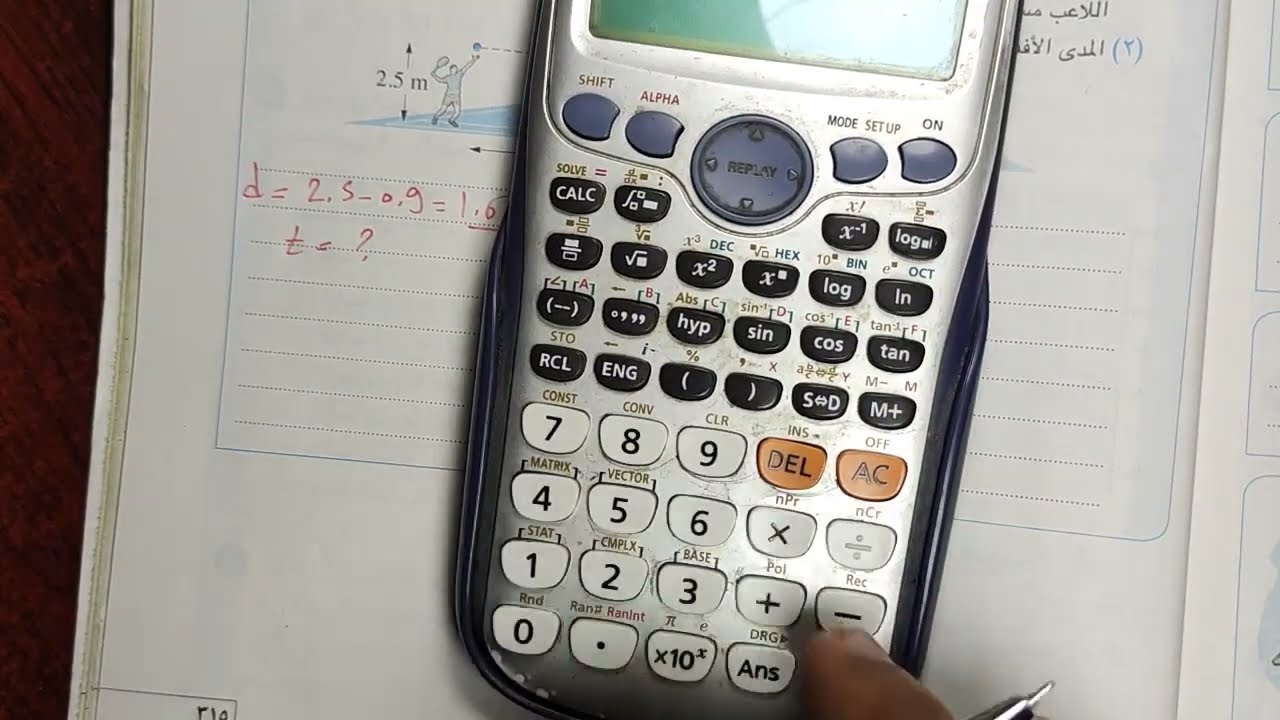 اللاعب
(٢) المدى
2.5 m
d = 2.5 - 0.9 = 1.6
t = ?
SHIFT ALPHA MODE SETUP ON
REPLAY
SOLVE = d/dx :
CALC x! x⁻¹ Σ log
x³ DEC HEX 10 BIN e OCT
√ x² x log ln
∠ [A] ← [B] Abs [C] sin⁻¹ [D] cos⁻¹ [E] tan⁻¹ [F]
(−) °,,, hyp sin cos tan
STO ← i % , X Y M− M
RCL ENG ( ) S⇔D M+
CONST CONV CLR INS OFF
7 8 9 DEL AC
MATRIX VECTOR nPr nCr
4 5 6 × ÷
STAT CMPLX BASE Pol Rec
1 2 3 + −
Rnd Ran# RanInt π e DRG▶
0 . ×10ˣ Ans
٢١٥